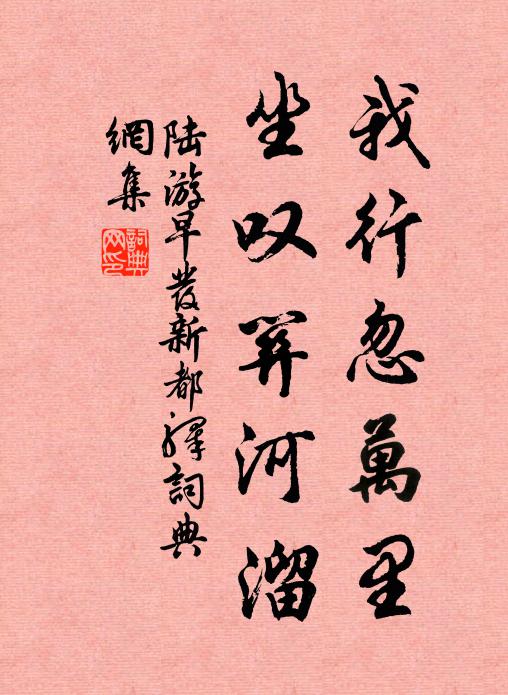 我行忽萬里
坐叹河溜
陆游早發新都驛詞典
網集
詞典網印